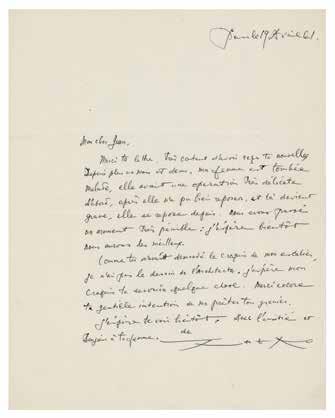 Paris le 19 Avril 61.
Mon cher Jean,
Merci ta lettre, très content d'avoir reçu ta nouvelles
Depuis plus un mois et demi, ma femme est tombée
malade, elle avait une opération très délicate
d'abord, après elle n'a pu bien reposer, et là devient
grave, elle se repose depuis. Nous avons passé
un moment très pénible ; j'espère bientôt
nous aurons du meilleur.
Comme tu m'avait demandé le croquis de mon atelier,
je n'ai pas le dessin de l'architecte, j'espère mon
croquis te servira quelque chose. Merci encore
ta gentille intention de me prêter ton grenier.
J'espère te voir bientôt, avec l'amitié et
à ta femme. de